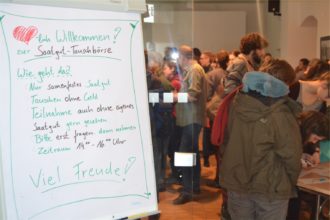 ♥-lich Willkommen!
zur Saatgut-Tauschbörse
Wie geht das?
Nur samenfestes Saatgut
Tauschen ohne Geld
Teilnahme auch ohne eigenes
Saatgut gern gesehen
Bitte erst fragen, dann nehmen
Zeitraum 14°° - 16°° Uhr
Viel Freude!